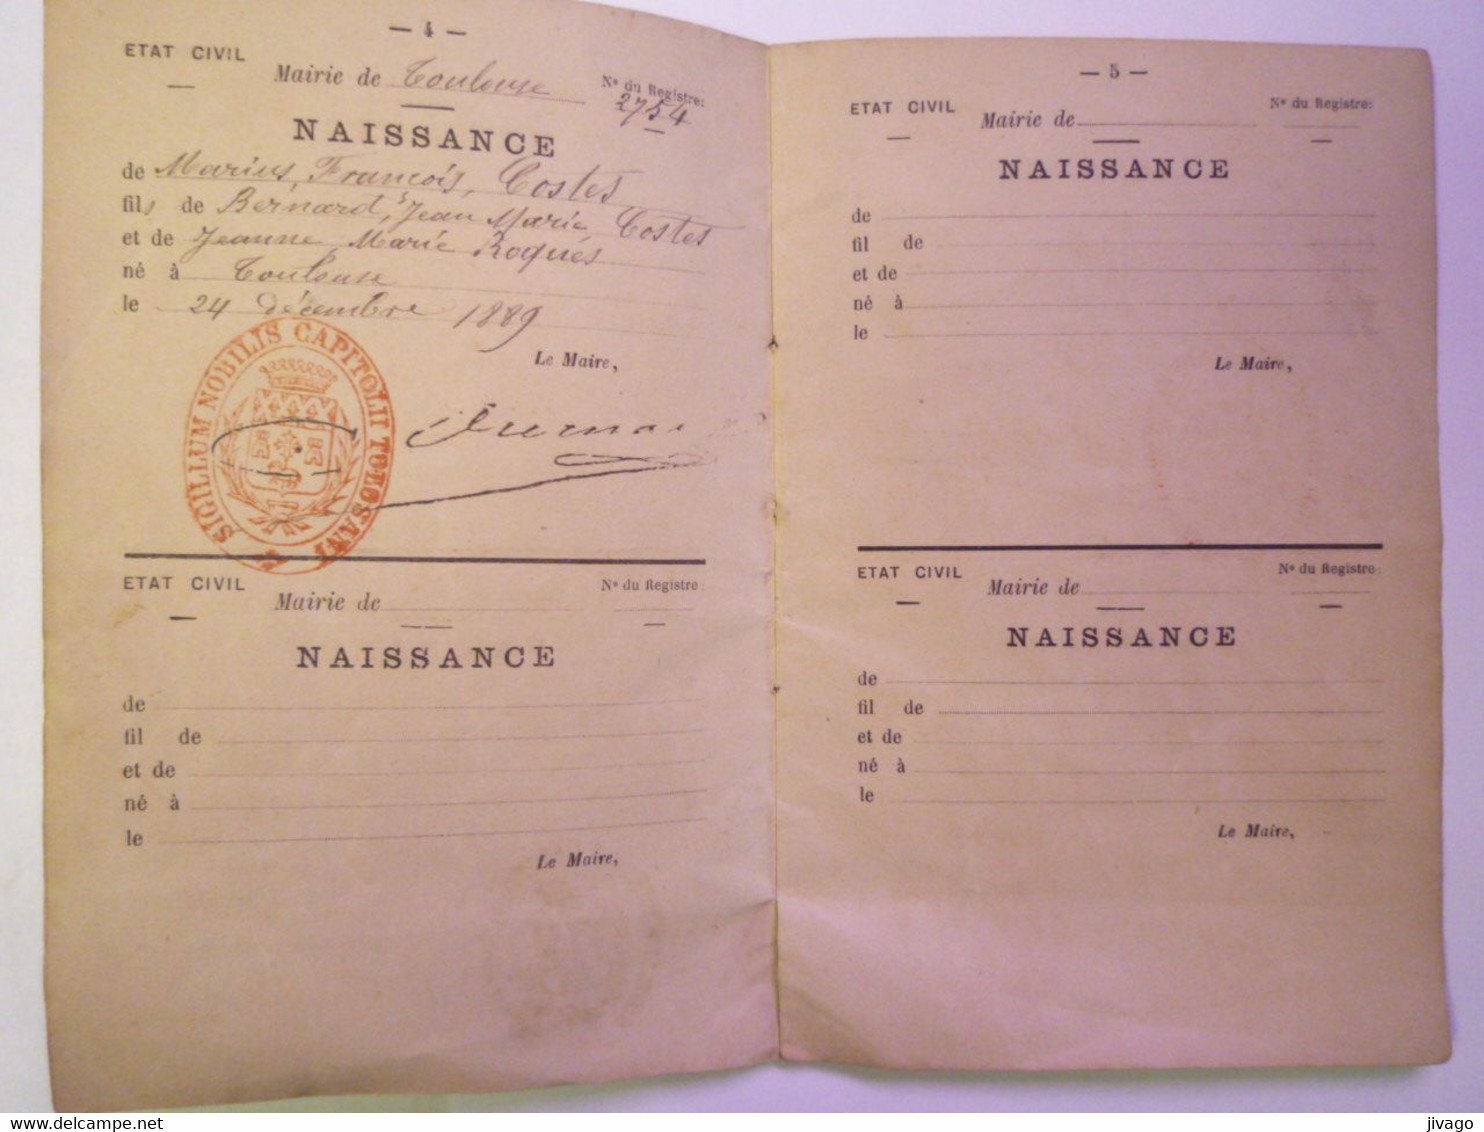 — 4 —
ETAT CIVIL
Mairie de Toulouse
Nº du Registre:
2754
NAISSANCE
de Marius, François, Costes
fils de Bernard, Jean Marie Costes
et de Jeanne Marie Roques
né à Toulouse
le 24 décembre 1889
Le Maire,
SIGILLUM NOBILIS CAPITOLII TOLOSANI
ETAT CIVIL
Mairie de
Nº du Registre:
NAISSANCE
de
fil de
et de
né à
le
Le Maire,
— 5 —
ETAT CIVIL
Mairie de
Nº du Registre:
NAISSANCE
de
fil de
et de
né à
le
Le Maire,
ETAT CIVIL
Mairie de
Nº du Registre:
NAISSANCE
de
fil de
et de
né à
le
Le Maire,
www.delcampe.net
jivago